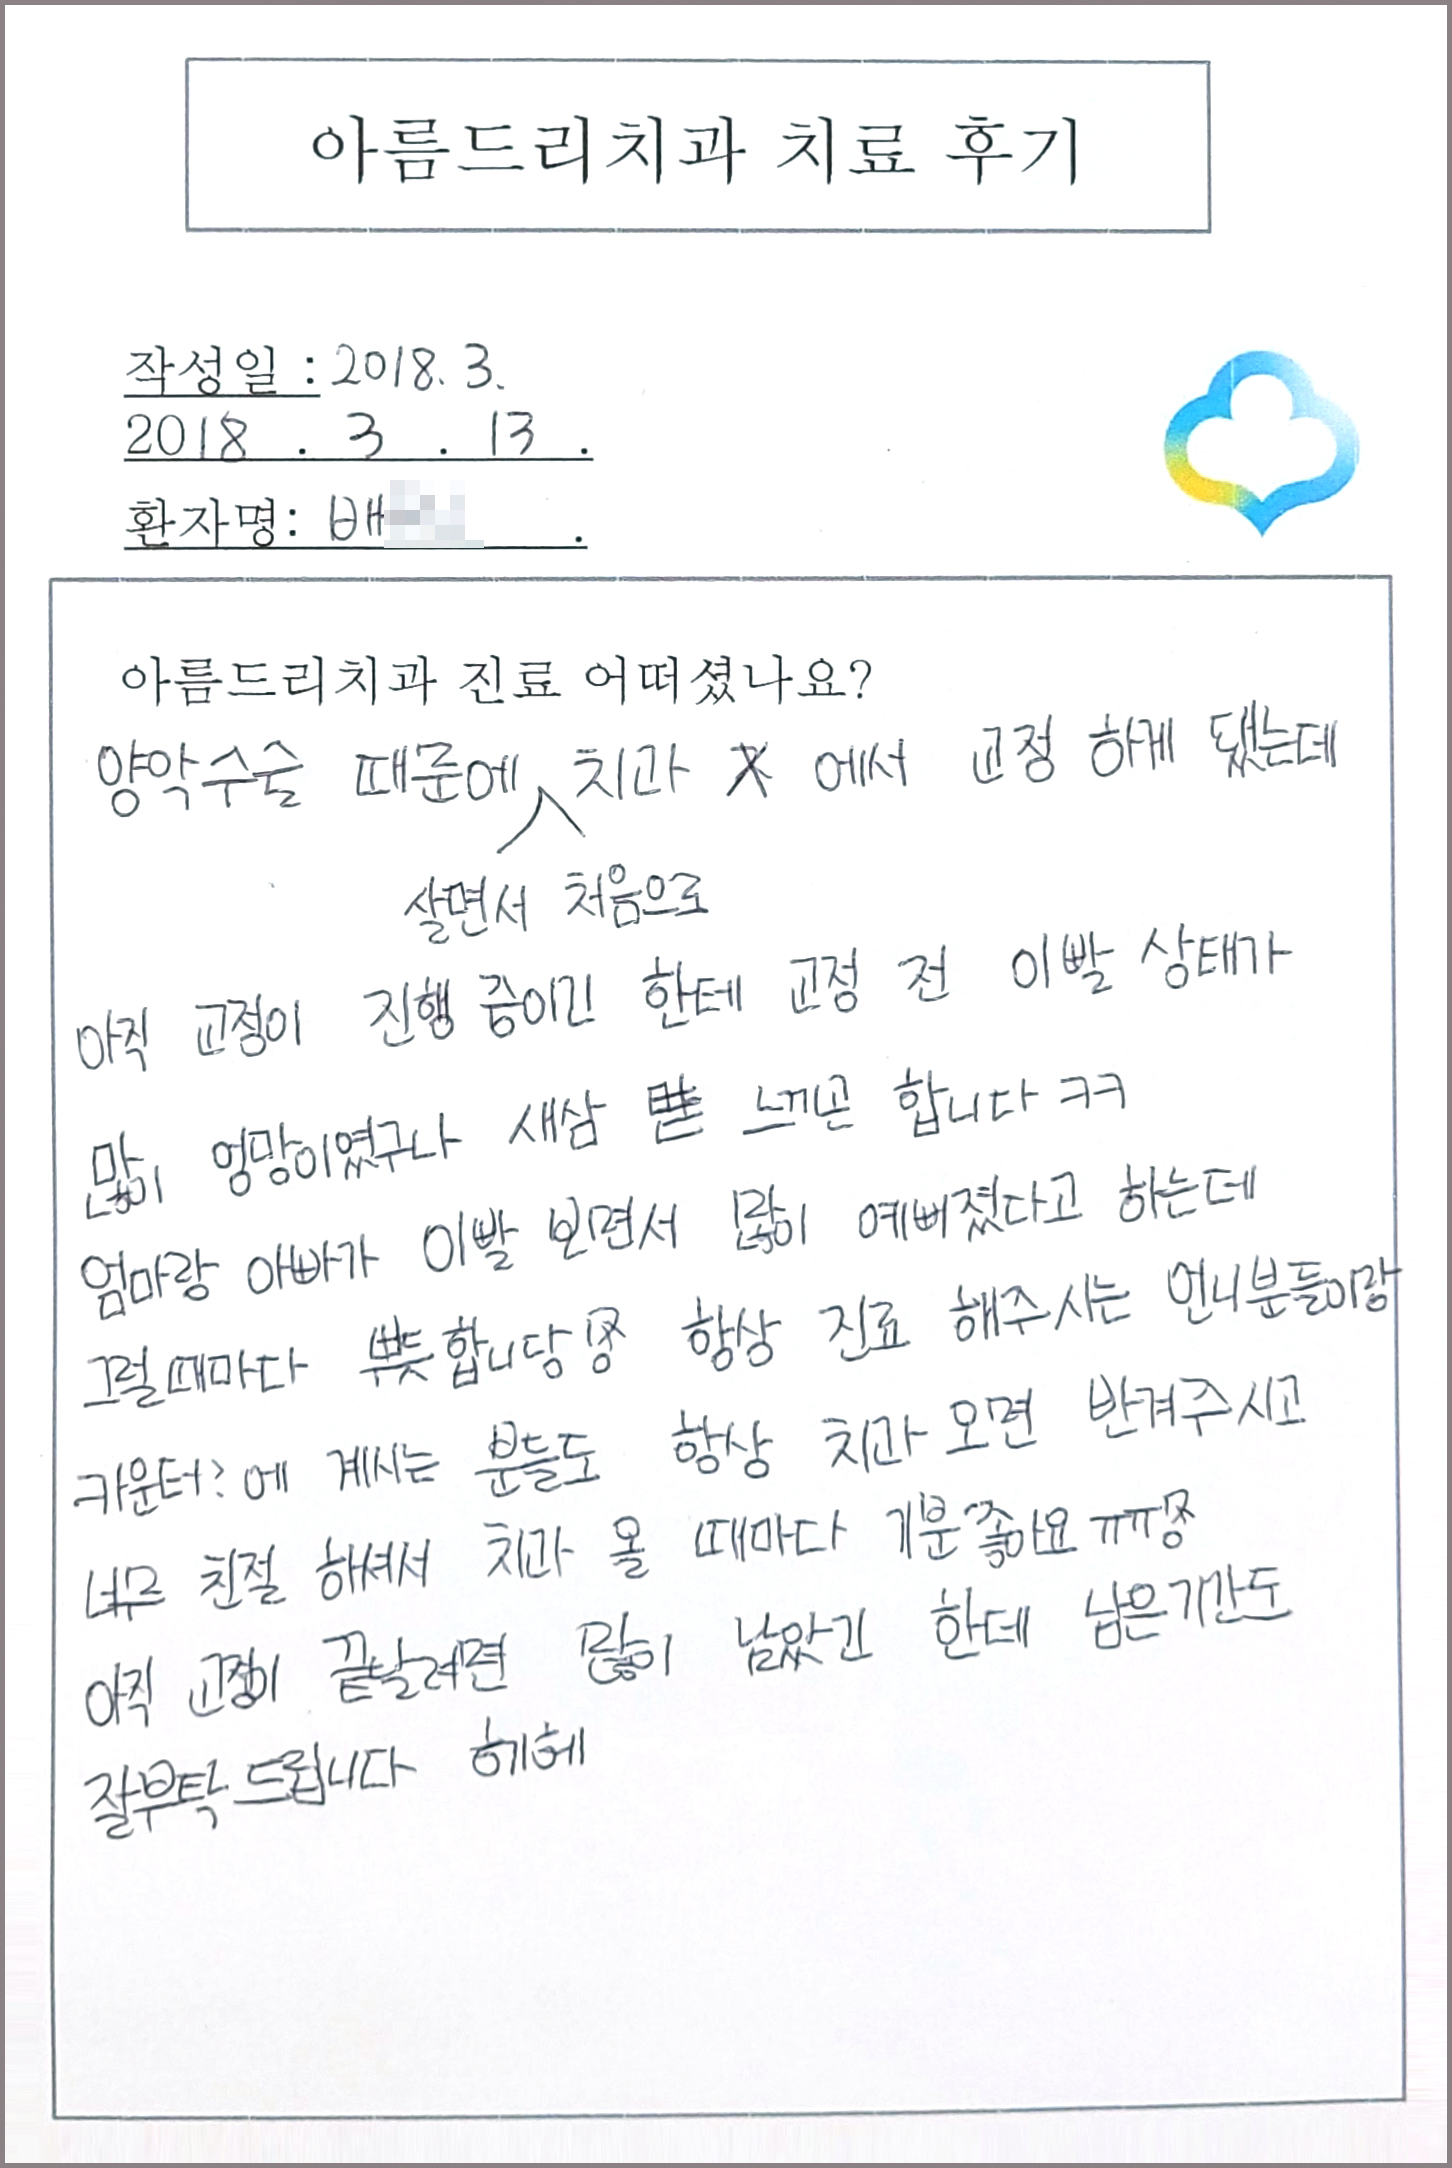 아름드리치과 치료 후기
작성일 : 2018. 3.
2018 . 3 . 13 .
환자명: 배 .
아름드리치과 진료 어떠셨나요?
양악수술 때문에 치과 에서 교정 하게 됐는데
살면서 처음으로
아직 교정이 진행 중이긴 한테 교정 전 이빨 상태가
많이 엉망이였구나 새삼 느끼곤 합니다 ㅋㅋ
엄마랑 아빠가 이빨 보면서 많이 예뻐졌다고 하는데
그럴때마다 뿌듯합니당 항상 진료 해주시는 언니분들이랑
카운터? 에 계시는 분들도 항상 치과 오면 반겨주시고
너무 친절 하셔서 치과 올 때마다 기분좋아요 ㅠㅠ
아직 교정이 끝날려면 많이 남았긴 한데 남은기간도
잘부탁드립니다 헤헤